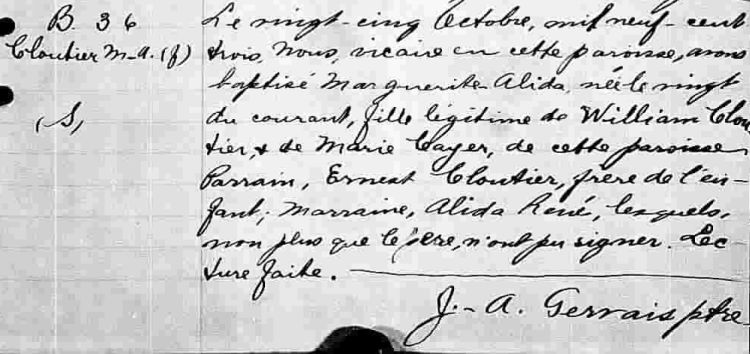 B. 36
Cloutier M-A. (f)
(S)
Le vingt-cinq Octobre, mil neuf-cent
trois, Nous, vicaire en cette paroisse, avons
baptisé Marguerite Alida, née le vingt
du courant, fille légitime de William Clou
tier, & de Marie Cayer, de cette paroisse
Parrain, Ernest Cloutier, frère de l'en-
fant; Marraine, Alida René, lesquels,
non plus que le père, n'ont pu signer. Lec
ture faite.
J.-A. Gervais ptre